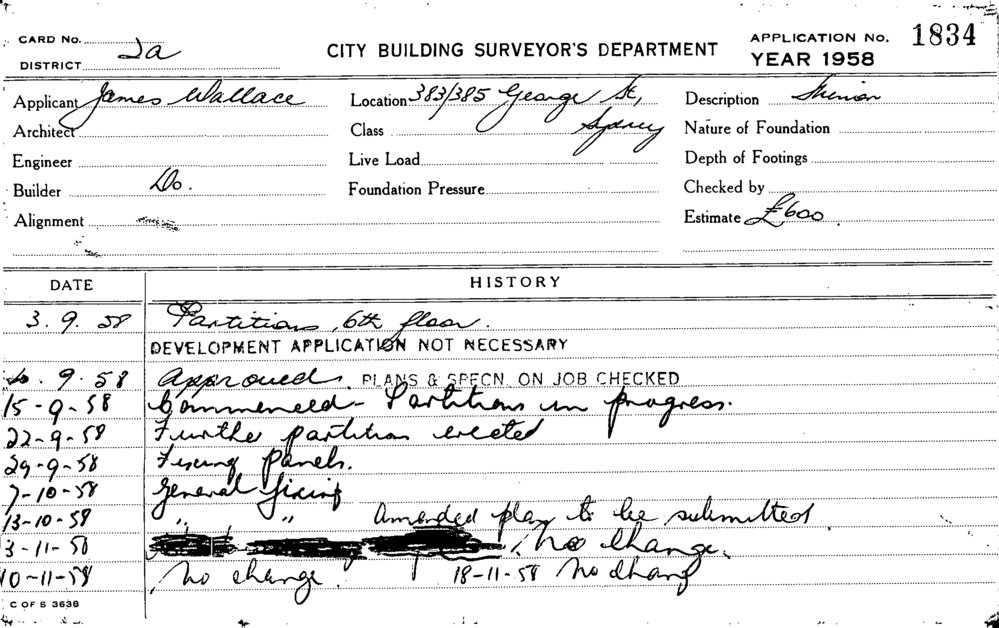 CARD No.
DISTRICT 2a
CITY BUILDING SURVEYOR'S DEPARTMENT
APPLICATION No. 1834
YEAR 1958
Applicant James Wallace
Location 383/385 George St, Sydney
Description
Architect
Class
Nature of Foundation
Engineer
Live Load
Depth of Footings
Builder Do.
Foundation Pressure
Checked by
Alignment
Estimate £600
DATE HISTORY
3. 9. 58 Partitions, 6th floor.
DEVELOPMENT APPLICATION NOT NECESSARY
9. 58 Approved. PLANS & SPECN. ON JOB CHECKED
15-9-58 Commenced - Partitions in progress.
22-9-58 Further partition erected
29-9-58 Fixing panels.
7-10-58 General fixing
13-10-58 " " Amended plan to be submitted
3-11-58 No change.
10-11-58 No change. 18-11-58 No change
C OF S 3638